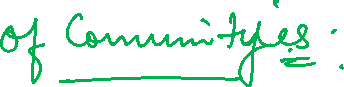 of Communityies: